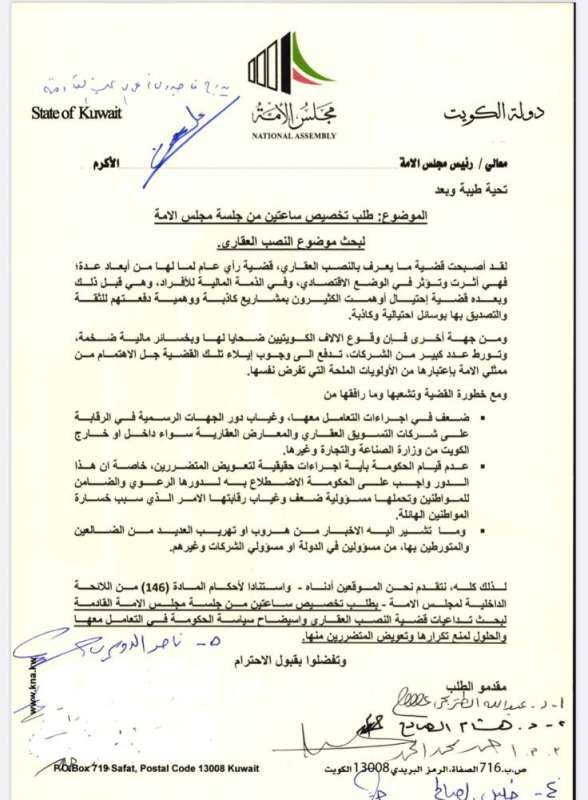 State of Kuwait
مجلس الأمة
NATIONAL ASSEMBLY
دولة الكويت
معالي / رئيس مجلس الامة
الأكرم
تحية طيبة وبعد
الموضوع: طلب تخصيص ساعتين من جلسة مجلس الامة
لبحث موضوع النصب العقاري.
لقد أصبحت قضية ما يعرف بالنصب العقاري، قضية رأي عام لما لها من أبعاد عدة؛
فهي أثرت وتؤثر في الوضع الاقتصادي، وفي الذمة المالية للأفراد، وهي قبل ذلك
وبعده قضية إحتيال أوهمت الكثيرون بمشاريع كاذبة ووهمية دفعتهم للثقة
والتصديق بها بوسائل احتيالية وكاذبة.
ومن جهة أخرى فإن وقوع الالاف الكويتيين ضحايا لها وبخسائر مالية ضخمة،
وتورط عدد كبير من الشركات، تدفع الى وجوب إيلاء تلك القضية جل الاهتمام من
ممثلي الامة بإعتبارها من الأولويات الملحة التي تفرض نفسها.
ومع خطورة القضية وتشعبها وما رافقها من
▪ ضعف في اجراءات التعامل معها، وغياب دور الجهات الرسمية في الرقابة
على شركات التسويق العقاري والمعارض العقارية سواء داخل او خارج
الكويت من وزارة الصناعة والتجارة وغيرها.
▪ عدم قيام الحكومة بأية اجراءات حقيقية لتعويض المتضررين، خاصة ان هذا
الدور واجب على الحكومة الاضطلاع به لدورها الرعوي والضامن
للمواطنين وتحملها مسؤولية ضعف وغياب رقابتها الامر الذي سبب خسارة
المواطنين الهائلة.
▪ وما تشير اليه الاخبار من هروب او تهريب العديد من الضالعين
والمتورطين بها، من مسؤولين في الدولة او مسؤولي الشركات وغيرهم.
لذلك كله، نتقدم نحن الموقعين أدناه - واستنادا لأحكام المادة (146) من اللائحة
الداخلية لمجلس الامة - بطلب تخصيص ساعتين من جلسة مجلس الامة القادمة
لبحث تداعيات قضية النصب العقاري واستيضاح سياسة الحكومة في التعامل معها
والحلول لمنع تكرارها وتعويض المتضررين منها.
وتفضلوا بقبول الاحترام
مقدمو الطلب
١- د. عبدالله الطريجي
٢- د. هشام الصالح
٣- أحمد محمد الحمد
٤- خليل الصالح
٥- ناصر الدوسري
www.kna.kw
P.O.Box 719 Safat, Postal Code 13008 Kuwait
ص.ب. 716 الصفاة، الرمز البريدي 13008 الكويت